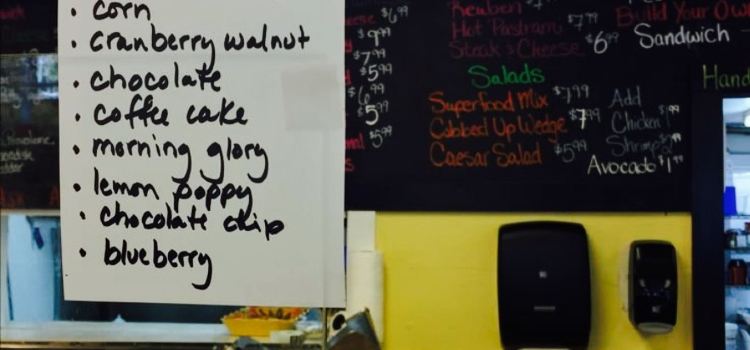 • corn
• cranberry walnut
• chocolate
• coffee cake
• morning glory
• lemon poppy
• chocolate chip
• blueberry
$6.99
$9.99
$7.99
$5.99
$5.99
$5.99
Reuben
Hot Pastrami $7.99
Steak & Cheese $6.99
Build Your Own
Sandwich
Salads
Superfood Mix $7.99
Cobbed Up Wedge $7.99
Caesar Salad $5.99
Add
Chicken
Shrimp
Avocado $1.99
Hand